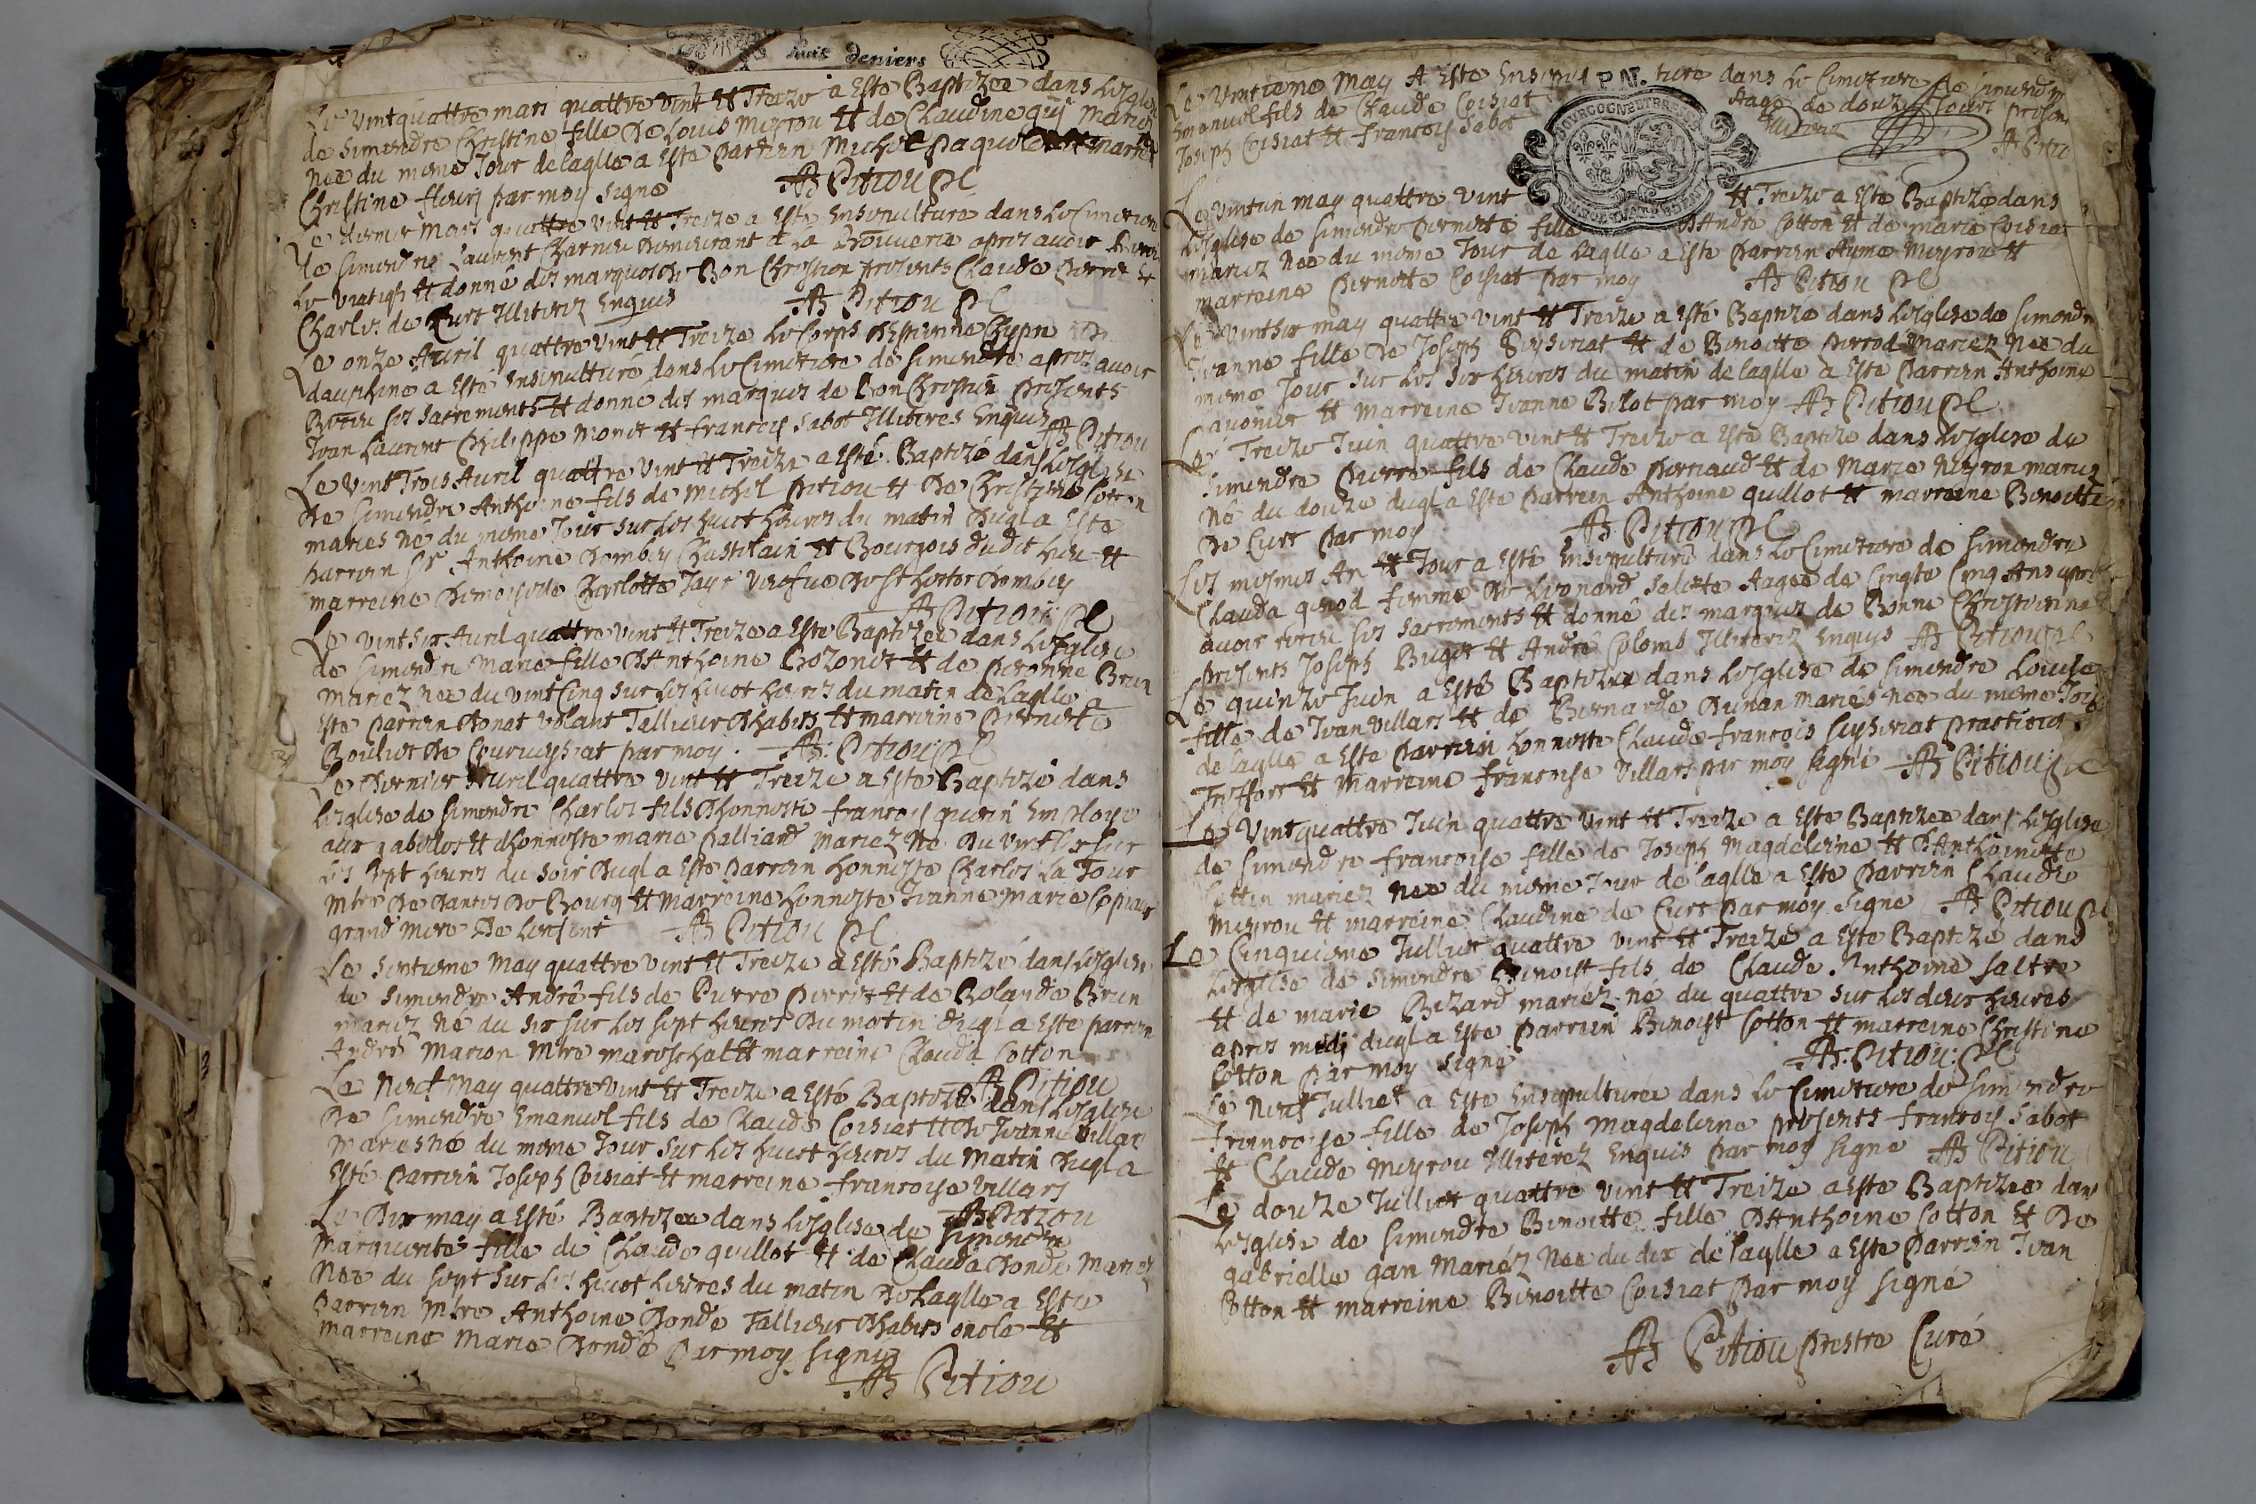 huit deniers
Le vint quattre mars quattre vint et Treize a Este Baptizée dans Lesglise
de Simendre Christine fille De Louis Meyrou et de Claudine guy Mariez
née du mesme Jour de laqlle a Este parrein Michel paquelet et marreine
Christine fleury par moy signé A Pitiou
Le dernier Mars quattre vint et Treize a Esté Ensepulturé dans Le Cimetiere
de Simendre Laurent Charnier demeurant a La Bouverie apres avoir Receu
Le viatique et donné des marques de Bon Chrestien presents Claude perret et
Charles de Curt Illiterez Enquis A Pitiou
Le onze Auril quattre vint et Treize Le Corps D'estienne
dauphine a Esté Ensepulturé dans Le Cimetiere de Simendre apres avoir
Receu ses sacrements et donné des marques de bon Chrestien presents
Jean Laurent Philippe Monet et francois Sabot Illiteres Enquis A Pitiou
Le Vint Trois Auril quattre vint et Treize a Esté Baptizé dans Lesglise
De Simendre Anthoine fils de Michel Pitiou et De Christine Cotton
mariés né du mesme Jour sur Les huict heures du matin duql a Este
parrein Sr Anthoine Dombey Chastelain et Bourgois dudit lieu et
marreine Demoiselle Charlotte Jayr vefve
A Pitiou
Le Vint six Auril quattre vint et Treize a Este Baptizée dans Lesglise
de Simendre Marie fille D'Anthoine Bozonet et de Peronne Brun
Mariez née du vint Cinq sur Les huict heures du matin de Laqlle a
Este parrein Donat volant Tallieur D'habits et marreine Pernette
Bouliet De Courveyssiat par moy. A Pitiou
Le Dernier Auril quattre vint et Treize a Este Baptizé dans
Lesglise de Simendre Charles fils D'honneste francois Employé
aux gabelles et d'honneste marie palliard Mariez Né Du vint
Les sept heures du soir Duql a Este parrein honneste Charles La Tour
Mtre De Danses De Bourg et Marreine honneste Jeanne Marie
grand mere De Lenfent A Pitiou
Le septieme May quattre vint et Treize a Esté Baptizé dans Lesglise
de Simendre André fils de Pierre Perret et de Rolande Brun
mariez né du six sur Les sept heures Du matin duql a Este parrein
André Marion Mtre mareschal et marreine Clauda Cotton
A Pitiou
Le Neuf May quattre vint et Treize a Esté Baptizé dans Lesglise
De Simendre Emanuel fils de Claude Coisiat et De Jeanne Villars
Mariés né du mesme Jour sur Les huict heures du Matin Duql a
Esté parrein Joseph Coisiat et marreine francoise Villars
A Pitiou
Le Dix may a Esté Baptizee dans Lesglise de Simendre
Marguerite fille de Claude guillot et de Clauda Donde Mariez
Née du sept sur Les huict heures du matin De Laqlle a Este
parrein Mtre Anthoine Donde Tallieur D'habits oncle et
marreine Marie Donde par moy signé
A Pitiou
Le Vintieme May A Este Ensepulturé dans Le Cimetiere de Simendre
Emanuel fils de Claude Coisiat Aagé de douze Jours presens
Joseph Coisiat et francois Sabot Illiterez
Le vintun may quattre vint et Treize a Este Baptizée dans
Lesglise de Simendre pernette fille D'Andre Cotton et de marie Coisiat
mariez Née du mesme Jour de Laqlle a Este parrein Ayme Meyrou et
marreine pernette Coisiat par moy A Pitiou
Le Vintsix may quattre vint et Treize a Esté Baptizée dans Lesglise de Simendre
Jeanne fille De Joseph Seyseriat et de Benoitte perrod Mariez Née du
mesme Jour sur Les six heures du matin de laqlle a Este parrein Anthoine
et Marreine Jeanne Bilot par moy A Pitiou
Le Treize Juin quattre vint et Treize a Este Baptizé dans Lesglise de
Simendre pierre fils de Claude perraud et de Marie Meyron mariez
Né du douze duql a Este parrein Anthoine guillot et marreine Benoitte
De Curt par moy A Pitiou
Les mesmes An et Jour a Esté Ensepulturée dans Le Cimetiere de Simendre
Clauda femme De Leonard Aagée de Cinqte Cinq Ans apres
avoir receu ses sacrements et donné des marques de Bonne Chrestienne
presents Joseph Buget et André Colomb Illiterez Enquis A Pitiou
Le quinze Juin a Esté Baptizée dans Lesglise de Simendre Louise
fille de Jean Villars et de Bernarde Dunan Mariés Née du mesme Jour
de Laqlle a Este Parrein honneste Claude francois Seyseriat practicien
Treffort et Marreine francoise Villars par moy signé A Pitiou
Le Vint quattre Juin quattre vint et Treize a Este Baptizee dans Lesglise
de Simendre francoise fille de Joseph Magdeleine et D'Anthoinette
Cottin mariez Née du mesme Jour de Laqlle a Este Parrein Claude
Meyrou et marreine Claudine de Curt par moy signé A Pitiou
Le Cinquiesme Julliet quattre vint et Treize a Este Baptizé dans
Lesglise de Simendre Benoist fils de Claude Anthoine saltre
et de marie Bezard mariez né du quattre sur Les deux heures
apres midj duql a Este parrein Benoist Cotton et marreine Christine
Cotton par moy signé A Pitiou
Le Neuf Julliet a Este Ensepulturée dans Le Cimetiere de Simendre
francoise fille de Joseph Magdeleine presents francois Sabot
et Claude Meyrou Illiterez Enquis par moy signé A Pitiou
Le douze Julliet quattre vint et Treize a Este Baptizee dans
Lesglise de Simendre Benoitte fille D'Anthoine Cotton et De
gabrielle gan Mariéz Née du dix de Laqlle a Este Parrein Jean
Cotton et marreine Benoitte Coisiat par moy signé
A Pitiou prestre Curé